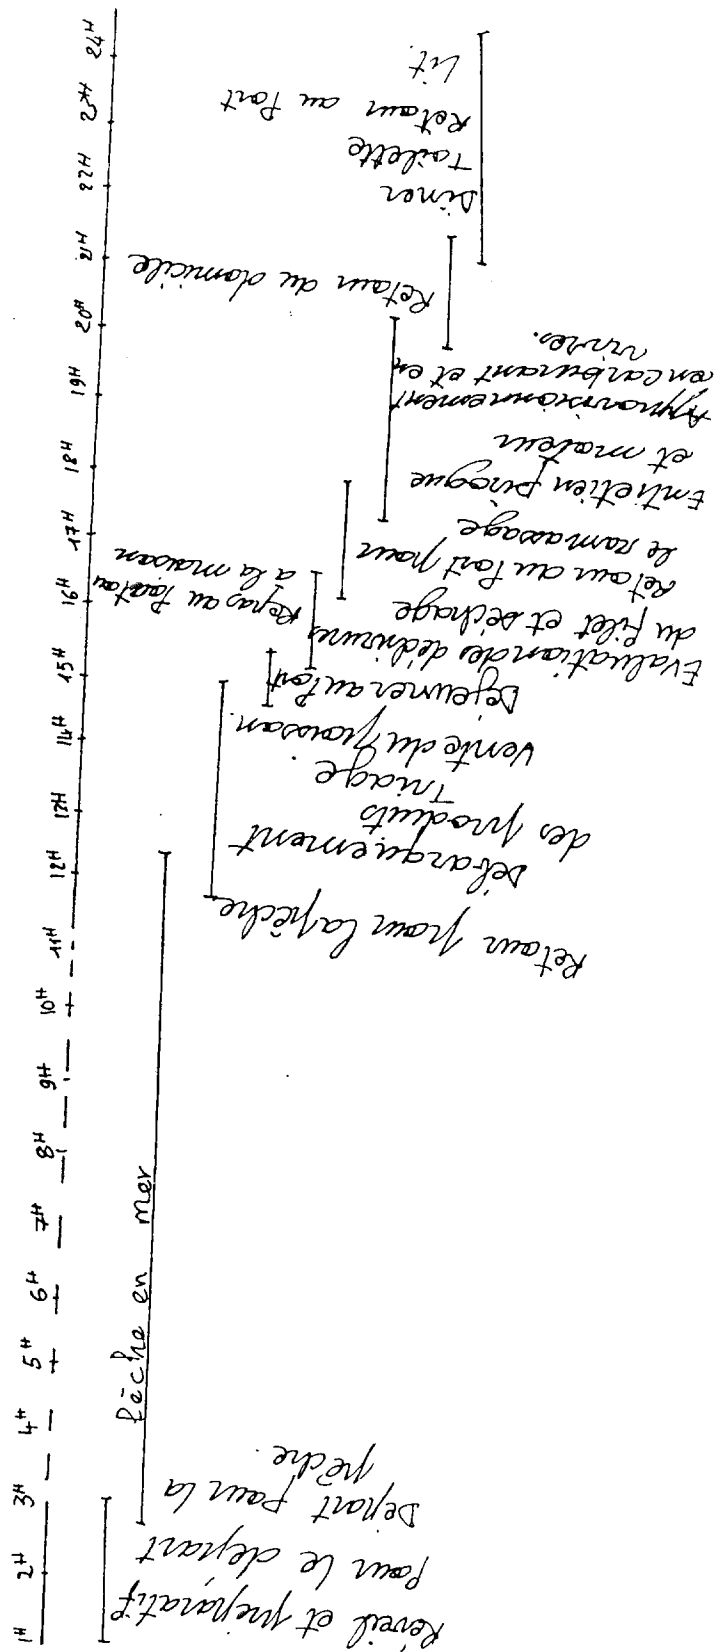 1H 2H 3H 4H 5H 6H 7H 8H 9H 10H 11H 12H 13H 14H 15H 16H 17H 18H 19H 20H 21H 22H 23H 24H
Réveil et préparatif
pour le départ
Départ pour la
pêche.
Pêche en mer
Retour pour la pêche
Débarquement
des produits
Triage.
Vente du poisson.
Déjeuner au Port
Repas au Port ou
à la maison
Evaluation des déchirures
du filet et séchage
Retour au Port pour
le ramassage
Entretien pirogue
et moteur
Approvisionnement
en carburant et en
vivres.
Retour au domicile
Dîner
Toilette
Retour au Port
Lit.